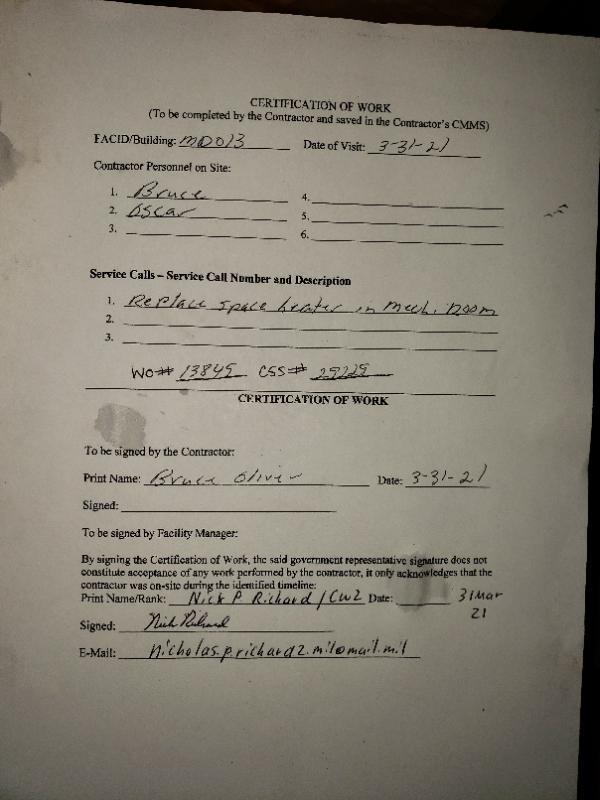 CERTIFICATION OF WORK
(To be completed by the Contractor and saved in the Contractor's CMMS)
FACID/Building: MD013 Date of Visit: 3-31-21
Contractor Personnel on Site:
1. Bruce 4.
2. Oscar 5.
3. 6.
Service Calls – Service Call Number and Description
1. Replace space heater in mech. Room
2.
3.
WO# 13845 CSS# 29229
CERTIFICATION OF WORK
To be signed by the Contractor:
Print Name: Bruce Oliver Date: 3-31-21
Signed:
To be signed by Facility Manager:
By signing the Certification of Work, the said government representative signature does not
constitute acceptance of any work performed by the contractor, it only acknowledges that the
contractor was on-site during the identified timeline:
Print Name/Rank: Nick P Richard / CW2 Date: 31 Mar
21
Signed: Nick Richard
E-Mail: nicholas.p.richard2.mil@mail.mil